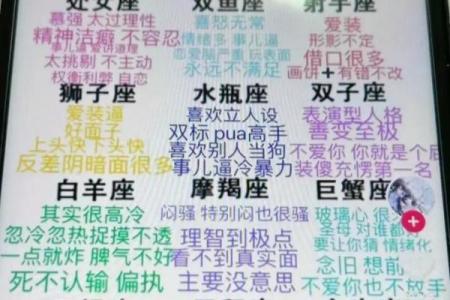 处女座 双鱼座 射手座
慕强 太过理性 喜怒无常 爱装
精神洁癖 不容忍 情绪多 事儿逼 形影不定
事儿逼 爱讲道理 恋爱脑严重 玩表面 借口很多
太挑剔 不主动 永远不满足 画饼+有错不改
权衡利弊 自恋
狮子座 水瓶座 双子座
爱装逼 喜欢立人设 表演型人格
好面子 双标 pua高手 善变至极
上头快下头快 喜欢别人当狗 不爱你 你就是个屁
反差阴暗面很多 事儿逼冷暴力 装傻充愣第一名
白羊座 摩羯座 巨蟹座
其实很高冷 闷骚 特别闷也很骚 玻璃心 很
忽冷忽热捉摸不透 理智到极点 圣母 对谁都
一点就炸 脾气不好 看不到真实面 要让你猜 情绪化
死不认输 偏执 主要没意思 念旧 想前
不爱你也不放手